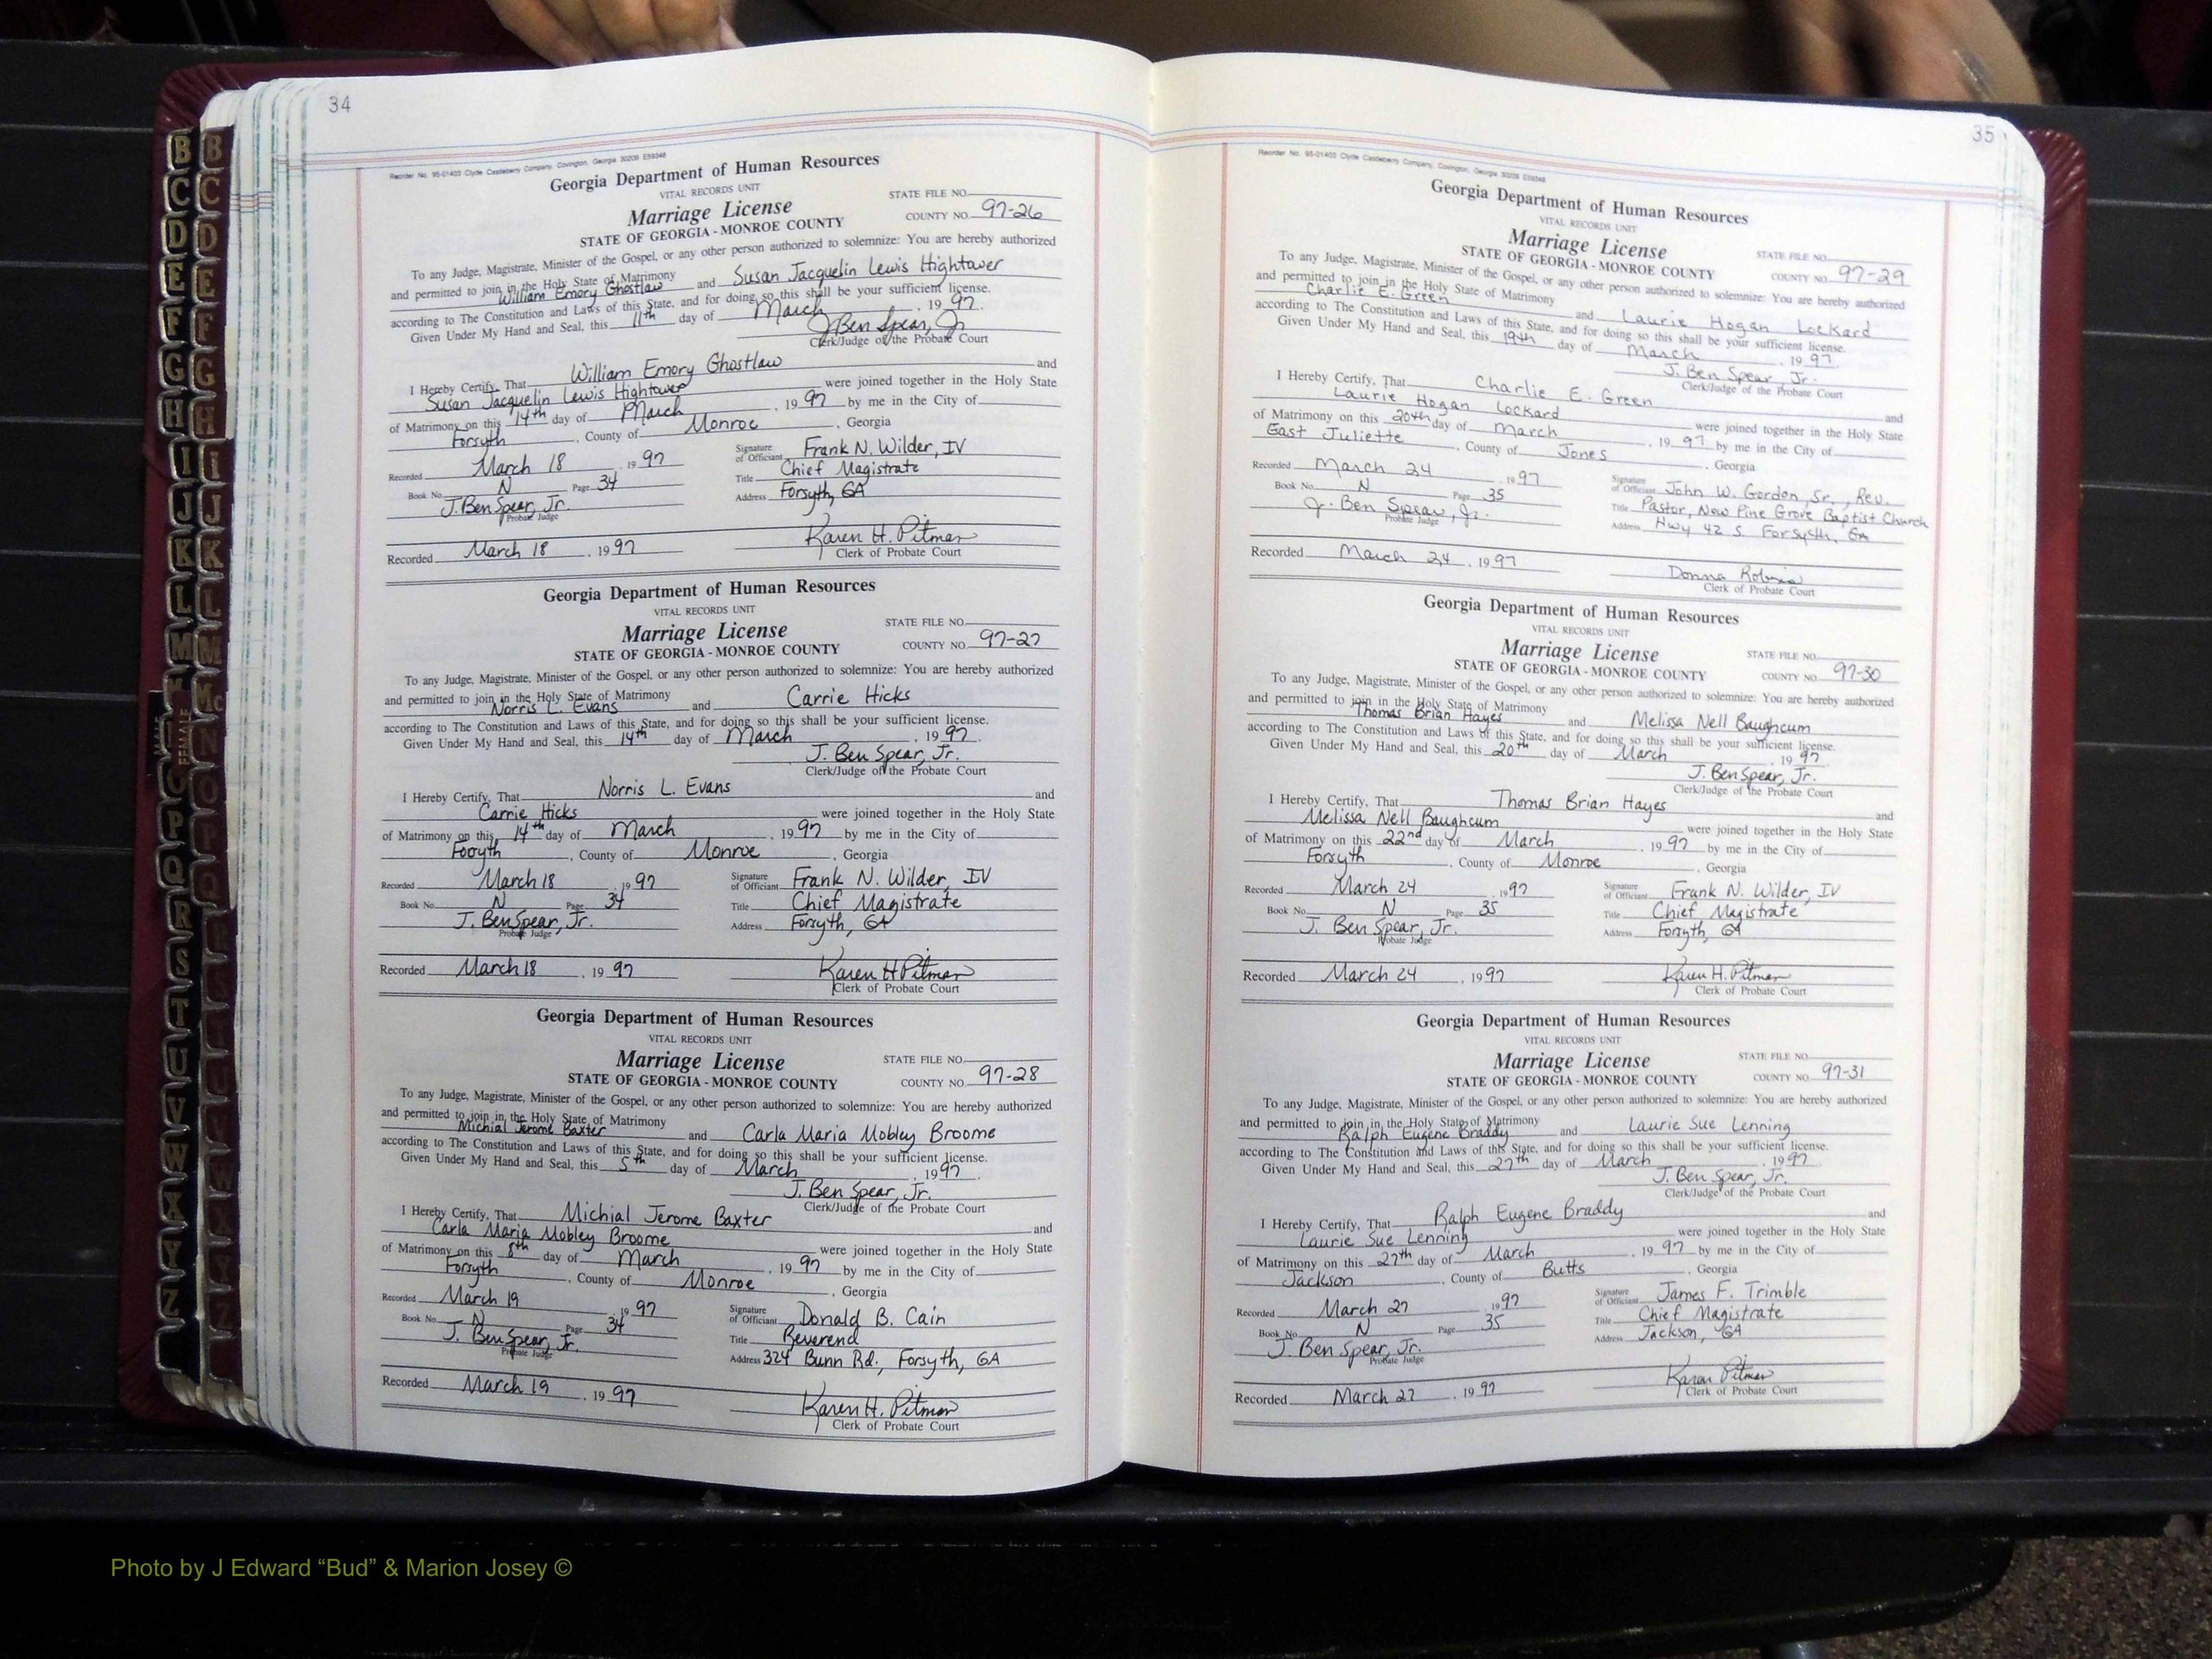 34
Reorder No. 95-01403 Clyde Castleberry Company, Covington, Georgia 30209 E59348
Georgia Department of Human Resources
VITAL RECORDS UNIT
Marriage License
STATE FILE NO.
STATE OF GEORGIA - MONROE COUNTY
COUNTY NO. 97-26
To any Judge, Magistrate, Minister of the Gospel, or any other person authorized to solemnize: You are hereby authorized
and permitted to join in the Holy State of Matrimony
William Emory Ghostlaw and Susan Jacquelin Lewis Hightower
according to The Constitution and Laws of this State, and for doing so this shall be your sufficient license.
Given Under My Hand and Seal, this 11th day of March, 1997.
J. Ben Spear, Jr.
Clerk/Judge of the Probate Court
I Hereby Certify, That William Emory Ghostlaw and
Susan Jacquelin Lewis Hightower were joined together in the Holy State
of Matrimony on this 14th day of March, 1997 by me in the City of
Forsyth, County of Monroe, Georgia
Recorded March 18 1997
Signature of Officiant Frank N. Wilder, IV
Book No. N Page 34
Title Chief Magistrate
J. Ben Spear, Jr.
Probate Judge
Address Forsyth, GA
Recorded March 18, 1997
Karen H. Pitman
Clerk of Probate Court
Georgia Department of Human Resources
VITAL RECORDS UNIT
Marriage License
STATE FILE NO.
STATE OF GEORGIA - MONROE COUNTY
COUNTY NO. 97-27
To any Judge, Magistrate, Minister of the Gospel, or any other person authorized to solemnize: You are hereby authorized
and permitted to join in the Holy State of Matrimony
Norris L. Evans and Carrie Hicks
according to The Constitution and Laws of this State, and for doing so this shall be your sufficient license.
Given Under My Hand and Seal, this 14th day of March, 1997.
J. Ben Spear, Jr.
Clerk/Judge of the Probate Court
I Hereby Certify, That Norris L. Evans and
Carrie Hicks were joined together in the Holy State
of Matrimony on this 14th day of March, 1997 by me in the City of
Forsyth, County of Monroe, Georgia
Recorded March 18 1997
Signature of Officiant Frank N. Wilder, IV
Book No. N Page 34
Title Chief Magistrate
J. Ben Spear, Jr.
Probate Judge
Address Forsyth, GA
Recorded March 18, 1997
Karen H Pitman
Clerk of Probate Court
Georgia Department of Human Resources
VITAL RECORDS UNIT
Marriage License
STATE FILE NO.
STATE OF GEORGIA - MONROE COUNTY
COUNTY NO. 97-28
To any Judge, Magistrate, Minister of the Gospel, or any other person authorized to solemnize: You are hereby authorized
and permitted to join in the Holy State of Matrimony
Michial Jerome Baxter and Carla Maria Mobley Broome
according to The Constitution and Laws of this State, and for doing so this shall be your sufficient license.
Given Under My Hand and Seal, this 5th day of March, 1997.
J. Ben Spear, Jr.
Clerk/Judge of the Probate Court
I Hereby Certify, That Michial Jerome Baxter and
Carla Maria Mobley Broome were joined together in the Holy State
of Matrimony on this 8th day of March, 1997 by me in the City of
Forsyth, County of Monroe, Georgia
Recorded March 19 1997
Signature of Officiant Donald B. Cain
Book No. N Page 34
Title Reverend
J. Ben Spear, Jr.
Probate Judge
Address 324 Bunn Rd., Forsyth, GA
Recorded March 19, 1997
Karen H. Pitman
Clerk of Probate Court
35
Reorder No. 95-01403 Clyde Castleberry Company, Covington, Georgia 30209 E59348
Georgia Department of Human Resources
VITAL RECORDS UNIT
Marriage License
STATE FILE NO.
STATE OF GEORGIA - MONROE COUNTY
COUNTY NO. 97-29
To any Judge, Magistrate, Minister of the Gospel, or any other person authorized to solemnize: You are hereby authorized
and permitted to join in the Holy State of Matrimony
Charlie E. Green and Laurie Hogan Lockard
according to The Constitution and Laws of this State, and for doing so this shall be your sufficient license.
Given Under My Hand and Seal, this 19th day of March, 1997.
J. Ben Spear Jr.
Clerk/Judge of the Probate Court
I Hereby Certify, That Charlie E. Green and
Laurie Hogan Lockard were joined together in the Holy State
of Matrimony on this 20th day of March, 1997 by me in the City of
East Juliette, County of Jones, Georgia
Recorded March 24, 1997
Signature of Officiant John W. Gordon, Sr., Rev.
Book No. N Page 35
Title Pastor, New Pine Grove Baptist Church
J. Ben Spear, Jr.
Probate Judge
Address Hwy 42 S. Forsyth, GA
Recorded March 24, 1997
Donna
Clerk of Probate Court
Georgia Department of Human Resources
VITAL RECORDS UNIT
Marriage License
STATE FILE NO.
STATE OF GEORGIA - MONROE COUNTY
COUNTY NO. 97-30
To any Judge, Magistrate, Minister of the Gospel, or any other person authorized to solemnize: You are hereby authorized
and permitted to join in the Holy State of Matrimony
Thomas Brian Hayes and Melissa Nell Baughcum
according to The Constitution and Laws of this State, and for doing so this shall be your sufficient license.
Given Under My Hand and Seal, this 20th day of March, 1997.
J. Ben Spear, Jr.
Clerk/Judge of the Probate Court
I Hereby Certify, That Thomas Brian Hayes and
Melissa Nell Baughcum were joined together in the Holy State
of Matrimony on this 22nd day of March, 1997 by me in the City of
Forsyth, County of Monroe, Georgia
Recorded March 24 1997
Signature of Officiant Frank N. Wilder, IV
Book No. N Page 35
Title Chief Magistrate
J. Ben Spear, Jr.
Probate Judge
Address Forsyth, GA
Recorded March 24, 1997
Karen H. Pitman
Clerk of Probate Court
Georgia Department of Human Resources
VITAL RECORDS UNIT
Marriage License
STATE FILE NO.
STATE OF GEORGIA - MONROE COUNTY
COUNTY NO. 97-31
To any Judge, Magistrate, Minister of the Gospel, or any other person authorized to solemnize: You are hereby authorized
and permitted to join in the Holy State of Matrimony
Ralph Eugene Braddy and Laurie Sue Lenning
according to The Constitution and Laws of this State, and for doing so this shall be your sufficient license.
Given Under My Hand and Seal, this 27th day of March, 1997.
J. Ben Spear, Jr.
Clerk/Judge of the Probate Court
I Hereby Certify, That Ralph Eugene Braddy and
Laurie Sue Lenning were joined together in the Holy State
of Matrimony on this 27th day of March, 1997 by me in the City of
Jackson, County of Butts, Georgia
Recorded March 27 1997
Signature of Officiant James F. Trimble
Book No. N Page 35
Title Chief Magistrate
J. Ben Spear, Jr.
Probate Judge
Address Jackson, GA
Recorded March 27, 1997
Karen Pitman
Clerk of Probate Court
B B
C C
D D
E E
F F
G G
H H
I I
J J
K K
L L
M M
Mc
MALE
FEMALE
N
O O
P P
Q Q
R
S
T
U U
V
W W
X X
Y Y
Z Z
Photo by J Edward “Bud” & Marion Josey ©